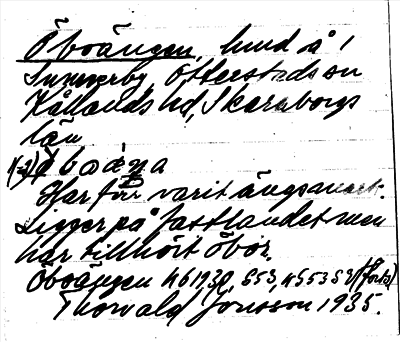 Öboängen, lund å 1
Sunnerby, Otterstads sn
Kållands hd, Skaraborgs
län
Har förr varit ängsmark.
Ligger på fastlandet men
har tillhört öbor.
Öboängen
Thorvald Jonsson 1935.